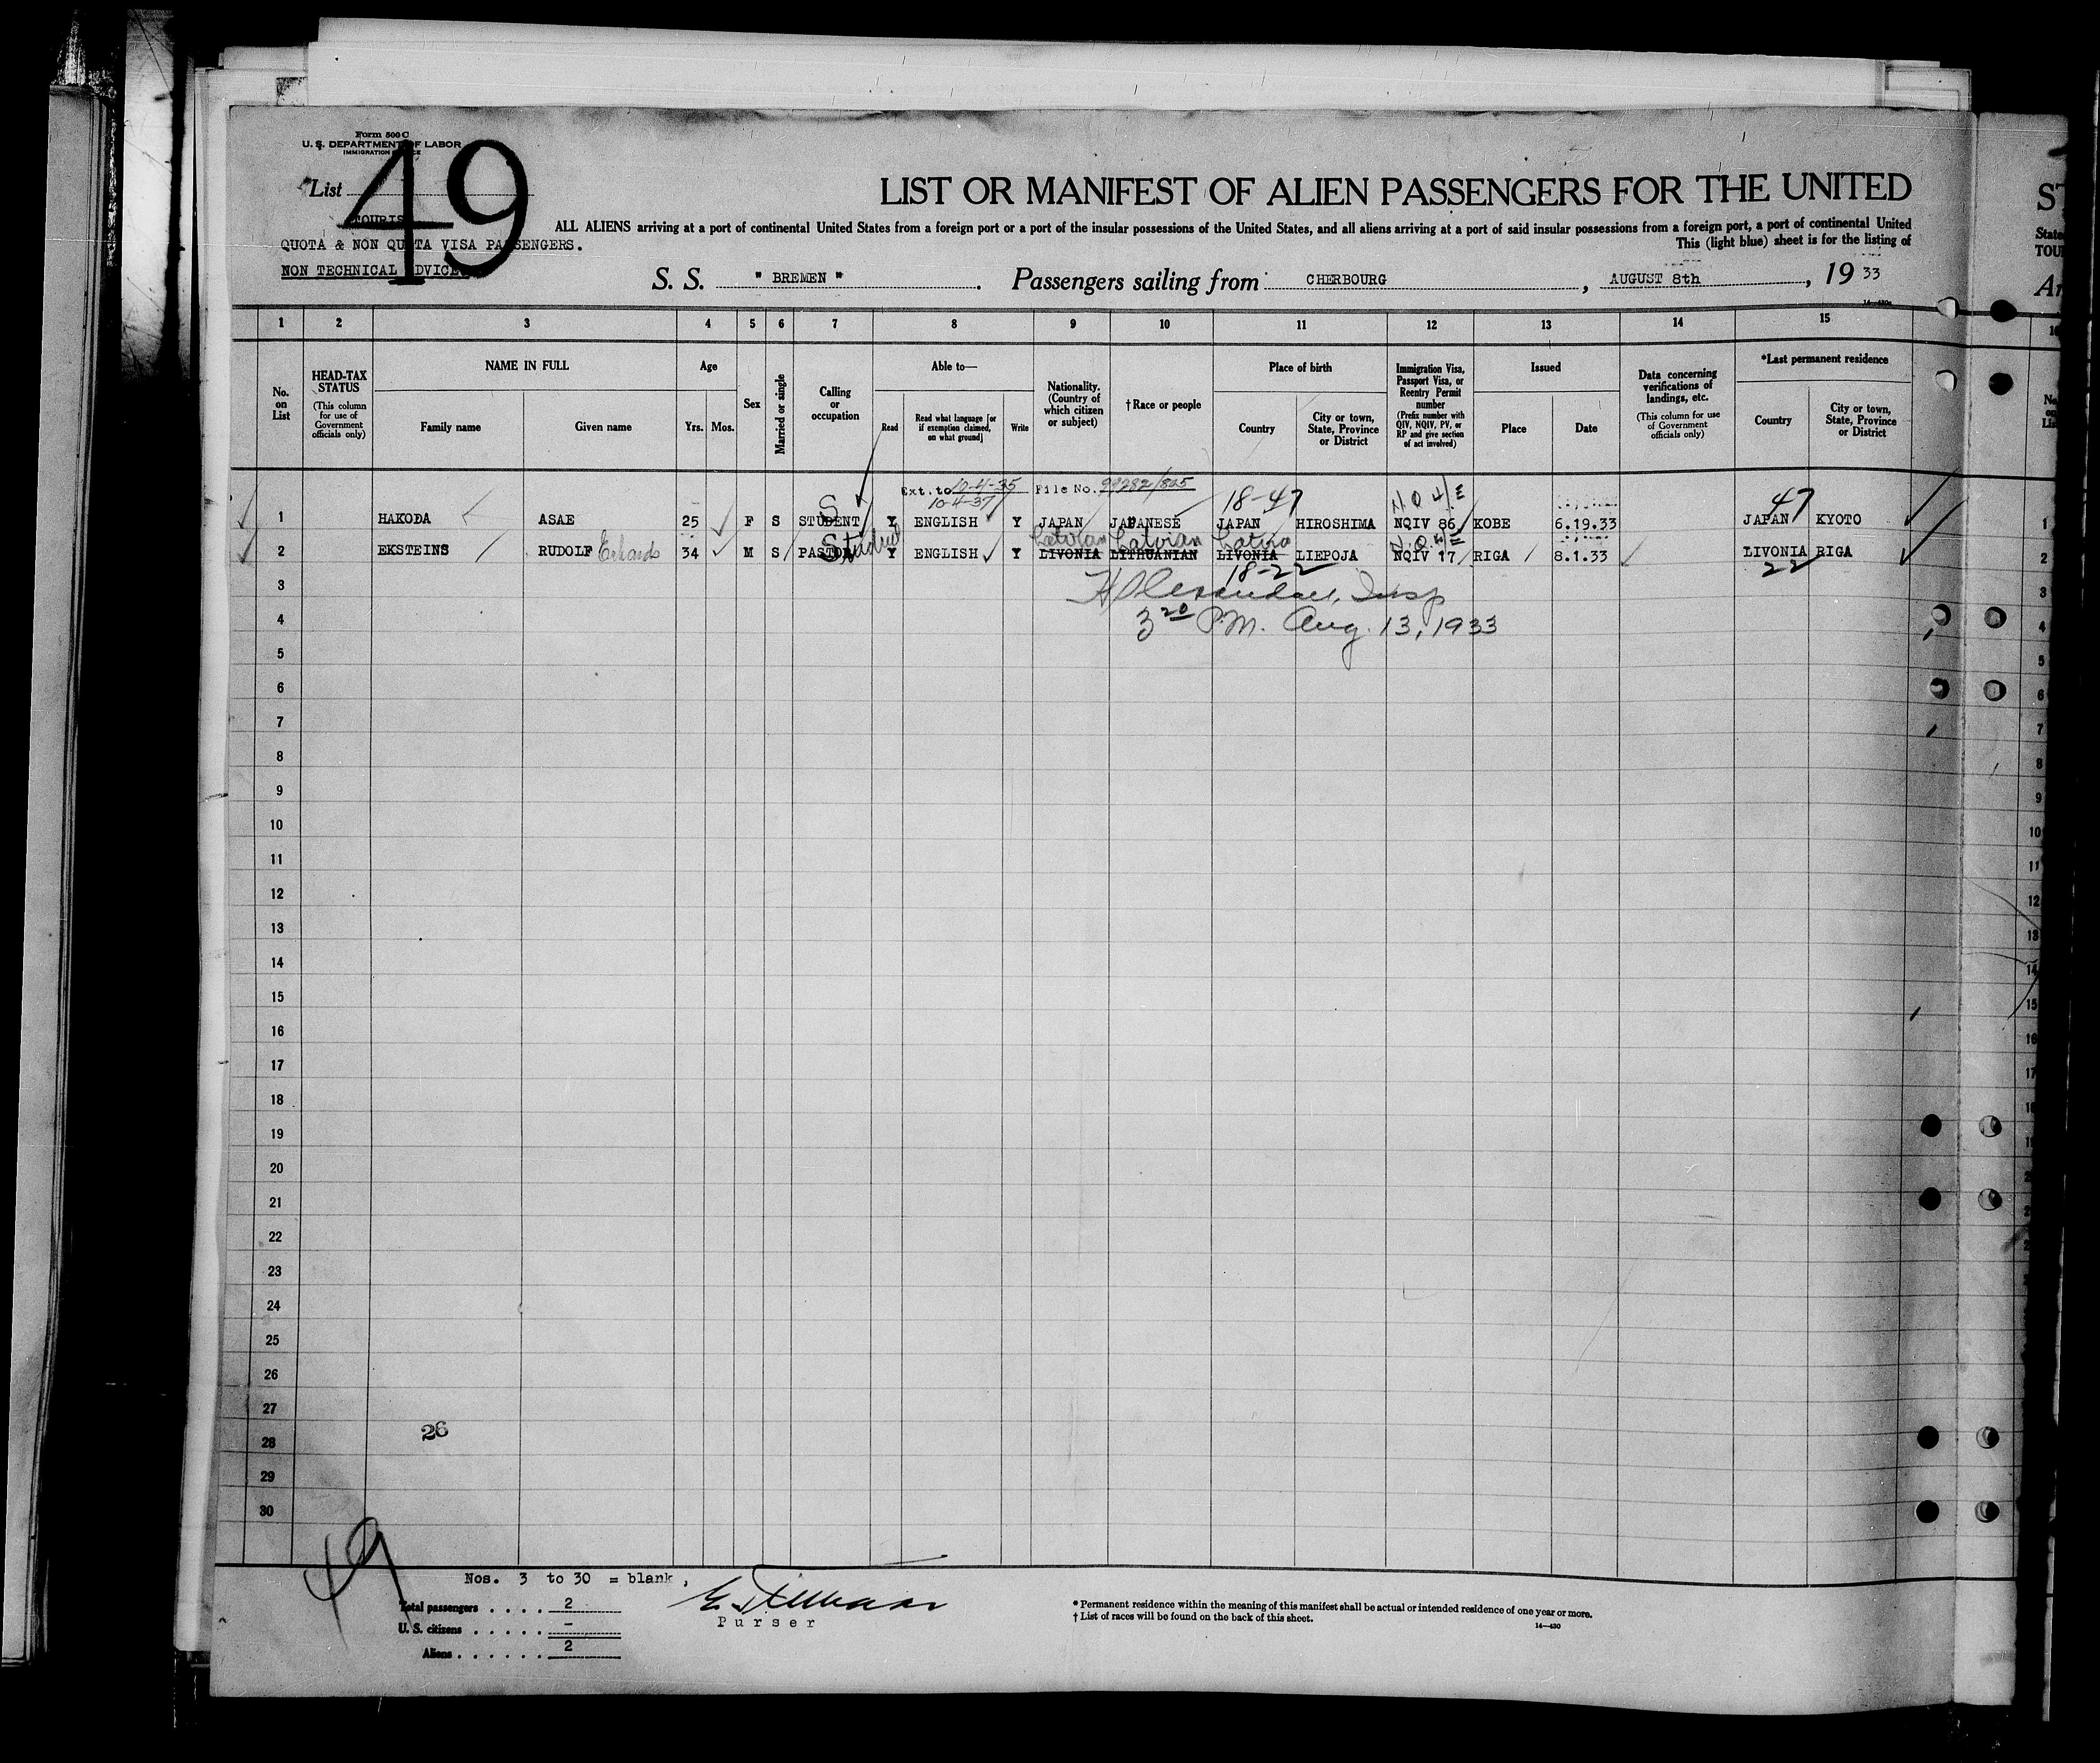 Form 500 C
U. S. DEPARTMENT OF LABOR
IMMIGRATION
List 49
TOURIS
QUOTA & NON QUOTA VISA PASSENGERS.
NON TECHNICAL ADVICE
LIST OR MANIFEST OF ALIEN PASSENGERS FOR THE UNITED
ALL ALIENS arriving at a port of continental United States from a foreign port or a port of the insular possessions of the United States, and all aliens arriving at a port of said insular possessions from a foreign port, a port of continental United
This (light blue) sheet is for the listing of
S. S. " BREMEN " . Passengers sailing from CHERBOURG , AUGUST 8th , 19 33
14—430
1 2 3 4 5 6 7 8 9 10 11 12 13 14 15
No. on List
HEAD-TAX STATUS (This column for use of Government officials only)
NAME IN FULL
Family name Given name
Age
Yrs. Mos.
Sex
Married or single
Calling or occupation
Able to—
Read Read what language [or if exemption claimed, on what ground] Write
Nationality. (Country of which citizen or subject)
†Race or people
Place of birth
Country City or town, State, Province or District
Immigration Visa, Passport Visa, or Reentry Permit number (Prefix number with QIV, NQIV, PV, or RP and give section of act involved)
Issued
Place Date
Data concerning verifications of landings, etc. (This column for use of Government officials only)
*Last permanent residence
Country City or town, State, Province or District
Ext. to 10-4-35 File No. 99282/805
10-4-37 18-47 47
1 HAKODA ASAE 25 F S STUDENT S Y ENGLISH Y JAPAN JAPANESE JAPAN HIROSHIMA NQIV 86 KOBE 6.19.33 JAPAN KYOTO 1
Student Latvian Latvian Latvia
2 EKSTEINS RUDOLF Erhards 34 M S PASTOR Y ENGLISH Y LIVONIA LITHUANIAN LIVONIA LIEPOJA NQIV 17 RIGA 8.1.33 LIVONIA RIGA 2
18-22 22
3 Insp 3
4 3 20 P.M. Aug. 13, 1933 4
5 5
6 6
7 7
8 8
9 9
10 10
11 11
12 12
13 13
14 14
15 15
16 16
17 17
18
19
20
21
22
23
24
25
26
27
26
28
29
30
49
Nos. 3 to 30 = blank ,
Total passengers . . . . 2
U. S. citizens . . . . . –
Aliens . . . . . . 2
Purser
* Permanent residence within the meaning of this manifest shall be actual or intended residence of one year or more.
† List of races will be found on the back of this sheet.
14—430